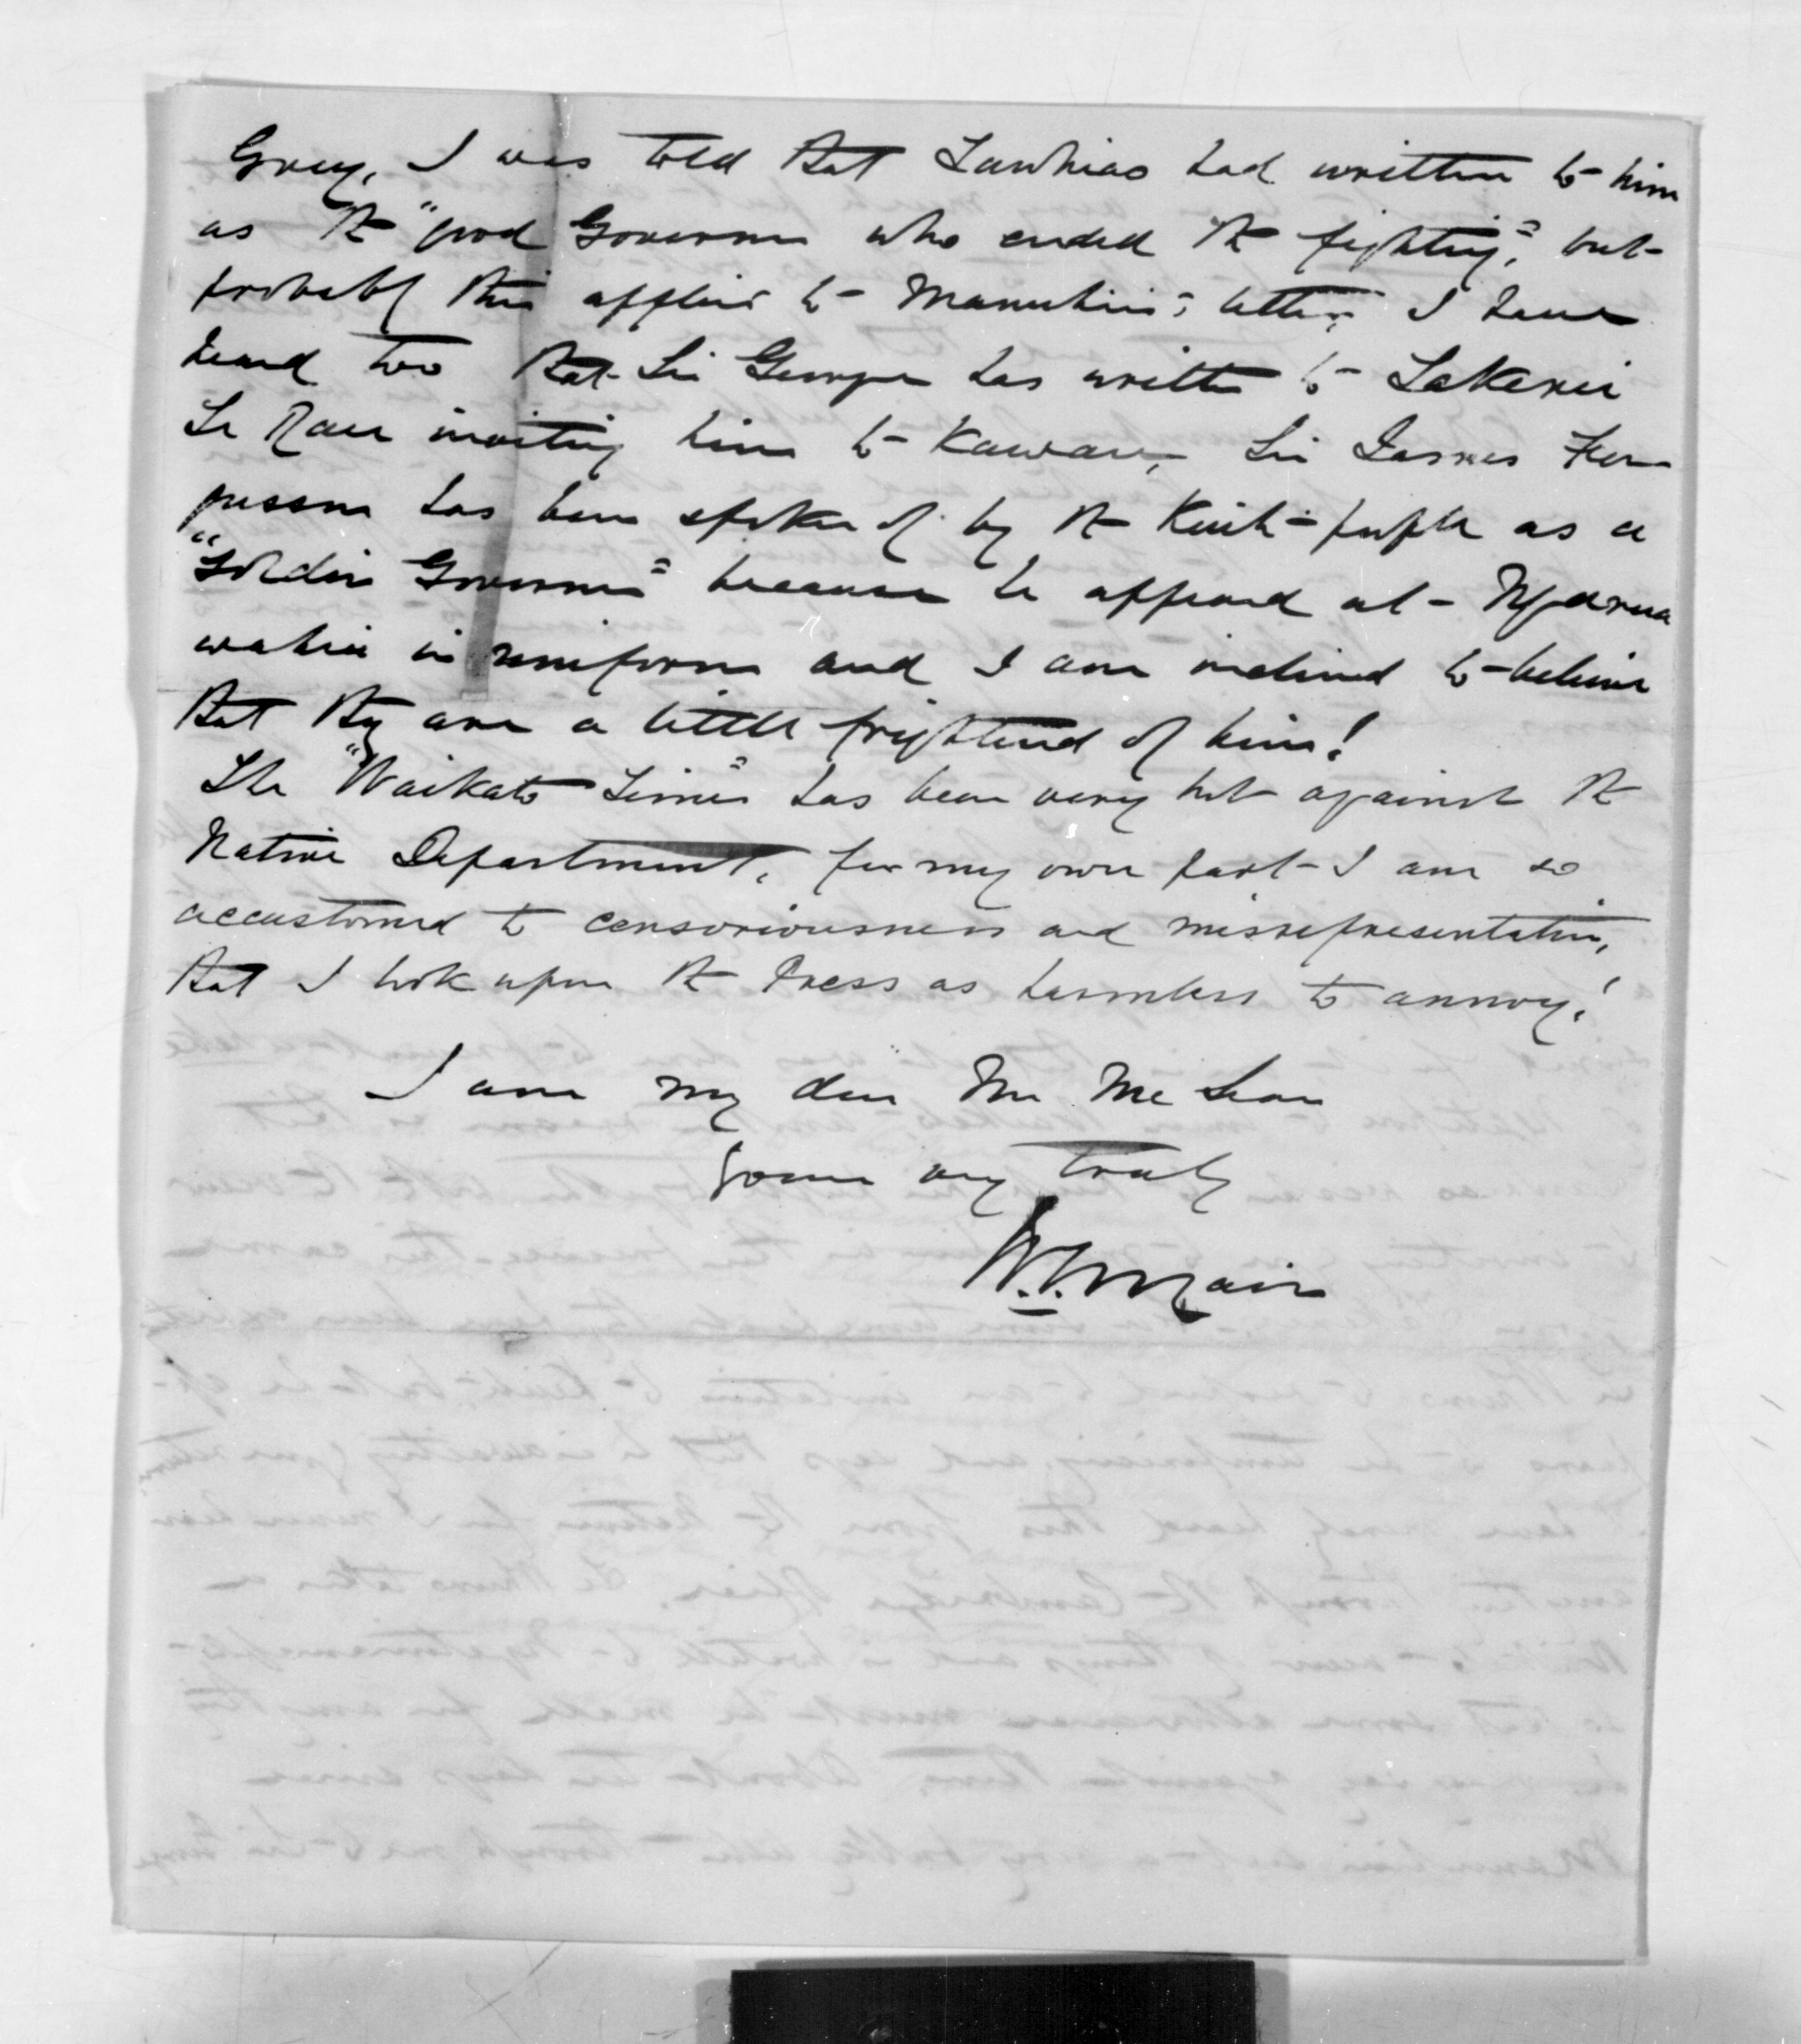 Grey, I was told that Tawhiao had written to him
as the "good Governor who ended the fighting", but
probably this applies to Manuhiri's letter, I have
heard too that Sir George has written to Takerei
Te Rau inviting him to Kawau, Sir James Fer
gusson has been spoken of by the Kuiti people as a
"Soldier Governor" because he appeared at Ngarua
wahia in uniform and I am inclined to believe
that they are a little frightened of him!
The "Waikato Times" has been very hot against the
Native Department, for my own part I am so
accustomed to censoriousness and misrepresentation,
that I look upon the Press as harmless to annoy!
I am my dear Mr McLean
Yours very truly
W.G. Mair